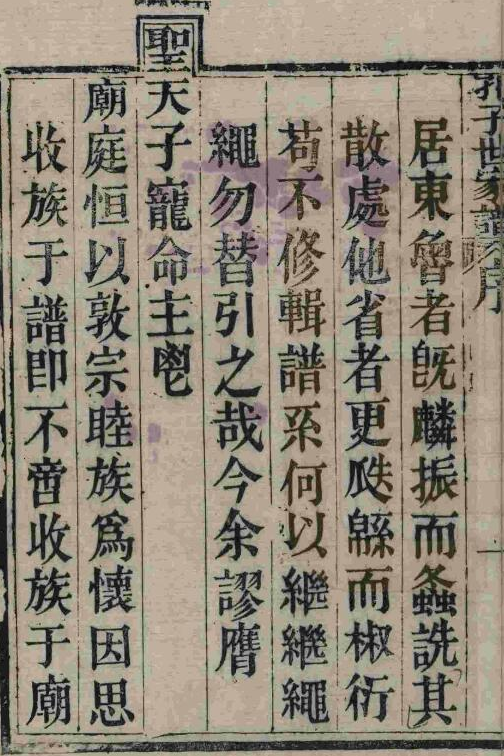 孔子世家譜序
居東魯者既麟振而螽詵其
散處他省者更瓞緜而椒衍
茍不修輯譜系何以繼繼繩
繩勿替引之哉今余謬膺
聖天子寵命主鬯
廟庭恒以敦宗睦族爲懷因思
收族于譜卽不啻收族于廟